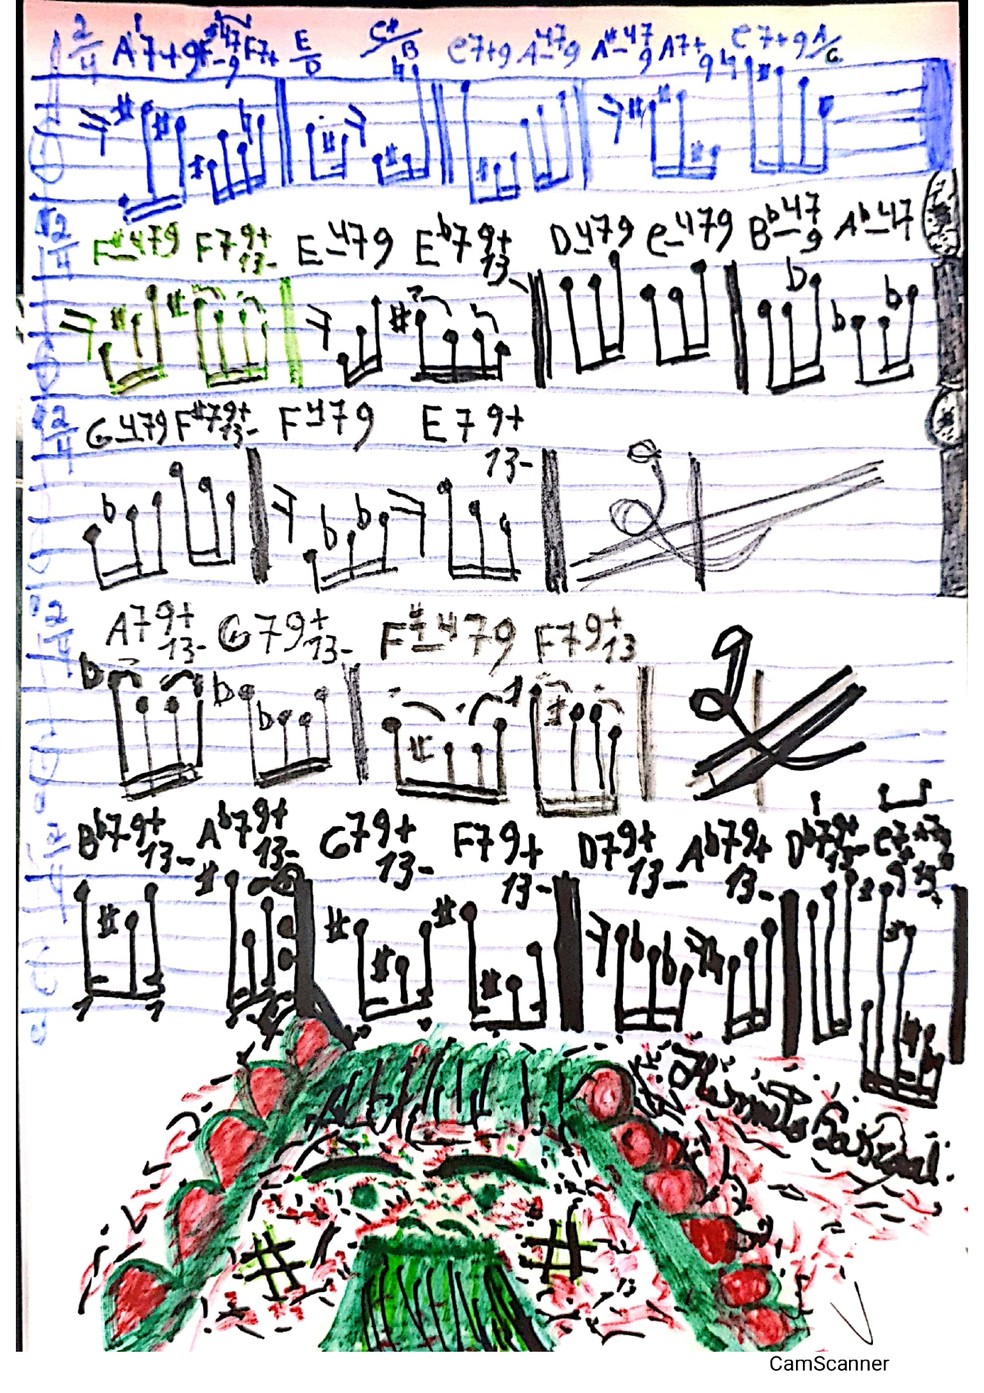 2/4 A7+9 F#-479 F7+ E/D C#/B C7+9 A-479 A#-479 A7+9 C7+9 A/G
2/4 F#-479 F79+13- E-479 Eb79+13- D-479 C-479 Bb-479 Ab-47
2/4 G-479 F#79+13- F-479 E79+13-
2/4 A79+13- G79+13- F#-479 F79+13
2/4 Bb79+13- Ab79+13- G79+13- F79+13- D79+13- Ab79+13- Db79+13-
Hermeto Pascoal
CamScanner